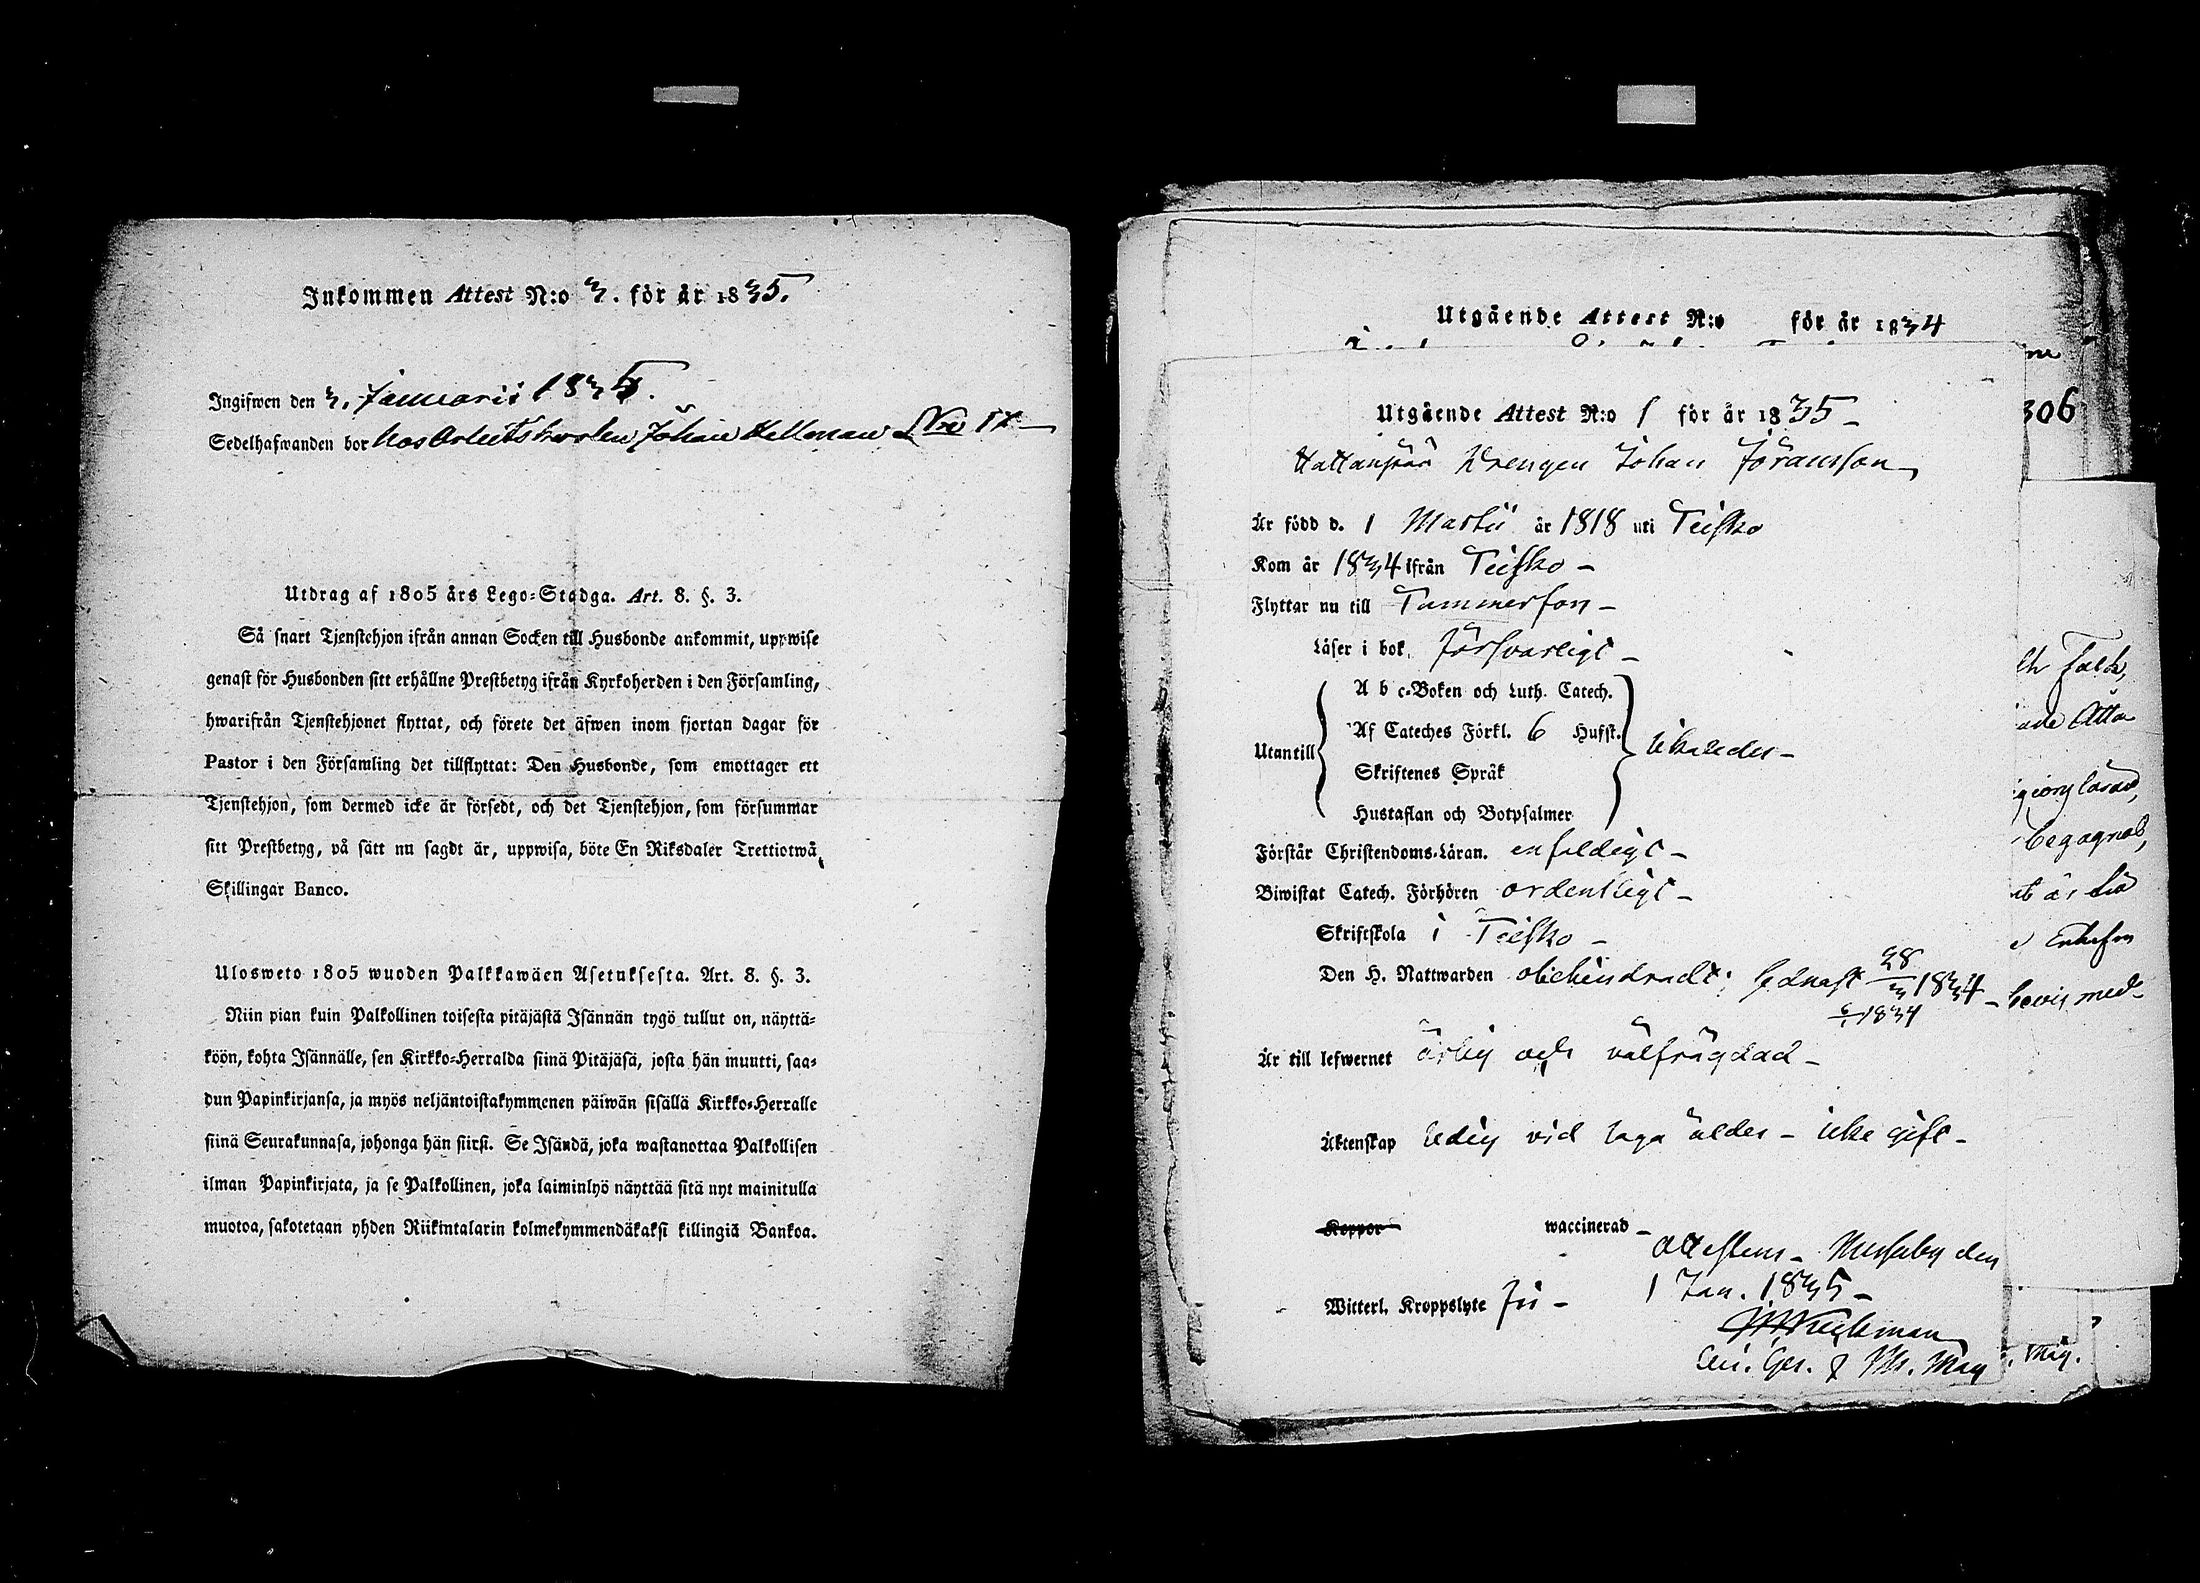 Inkommen Attest N:o 3. för år 1835.
Ingifwen den 3. Januarii 1835.
Sedelhafwanden bor hos Arbetskarlen Johan Hellman
Utdrag af 1805 års Lego-Stadga. Art. 8. §. 3.
Så snart Tjenstehjon ifrån annan Socken till Husbonde ankommit, uppwise
genast för Husbonden sitt erhållne Prestbetyg ifrån Kyrkoherden i den Församling,
hwarifrån Tjenstehjonet flyttat, och förete det äfwen inom fjortan dagar för
Pastor i den Församling det tillflyttat: Den Husbonde, som emottager ett
Tjenstehjon, som dermed icke är försedt, och det Tjenstehjon, som försummar
sitt Prestbetyg, på sätt nu sagdt är, uppwisa, böte En Riksdaler Trettiotwå
Skillingar Banco.
Ulosweto 1805 wuoden Palkkawäen Asetuksesta. Art. 8. §. 3.
Niin pian kuin Palkollinen toisesta pitäjästä Isännän tygö tullut on, näyttä-
köön, kohta Isännälle, sen Kirkko-Herralda siinä Pitäjäsä, josta hän muutti, saa-
dun Papinkirjansa, ja myös neljäntoistakymmenen päiwän sisällä Kirkko-Herralle
siinä Seurakunnasa, johonga hän siirsi. Se Isändä, joka wastanottaa Palkollisen
ilman Papinkirjata, ja se Palkollinen, joka laiminlyö näyttää sitä nyt mainitulla
muotoa, sakotetaan yhden Riikintalarin kolmekymmendäkaksi killingiä Bankoa.
Utgående Attest N:o för år 1834
Utgående Attest N:o 1 för år 1835 -
Drengen Johan Jöransson
Är född d. 1 Martii år 1818 uti Teisko
Kom år 1834 ifrån Teisko -
Flyttar nu till Tammerfors -
Läser i bok försvarligt -
Utantill
A b c-Boken och Luth. Catech.
Af Cateches Förkl. 6 Hufst.
Skriftenes Språk
Hustaflan och Botpsalmer
likaledes -
Förstår Christendoms-Läran. enfaldigt -
Biwistat Catech. Förhören ordentligt -
Skriftskola i Teisko -
Den H. Nattwarden obehindradt; sednast 28/3 1834 -
1834
Är till lefwernet ärlig och välfrägdad -
Äktenskap ledig vid laga ålder - icke gift -
Koppor waccinerad -
Witterl. Kroppslyte fri -
attestens - Messuby den
1 Jan. 1835 -
306